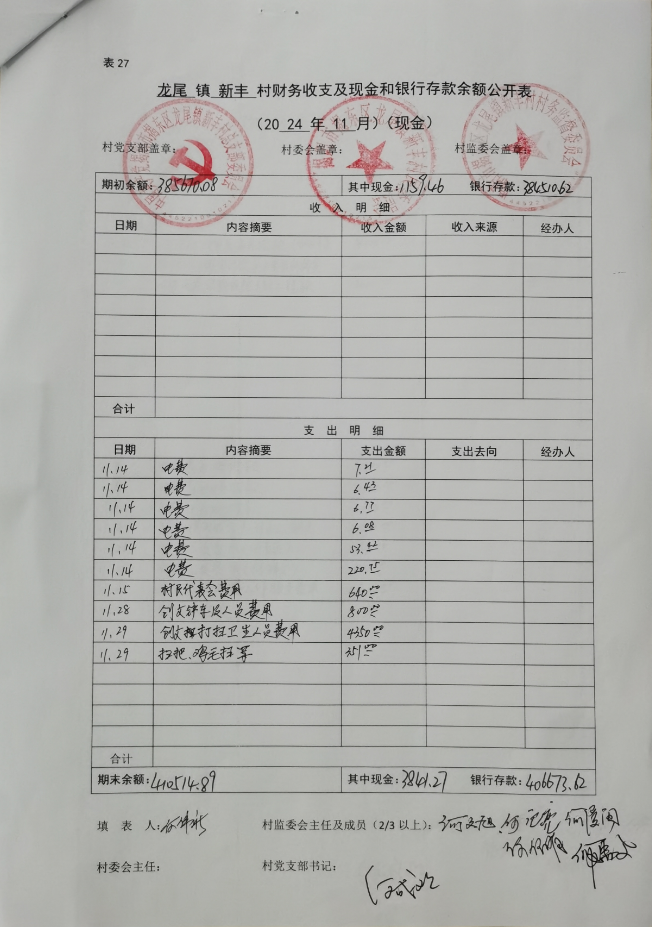 表 27
龙尾 镇 新丰 村财务收支及现金和银行存款余额公开表
(20 24 年 11 月)(现金)
村党支部盖章: 村委会盖章: 村监委会盖章:
期初余额:385670.08 其中现金:1159.46 银行存款:384510.62
收 入 明 细
日期 内容摘要 收入金额 收入来源 经办人
合计
支 出 明 细
日期 内容摘要 支出金额 支出去向 经办人
11.14 电费
11.14 电费 6.43
11.14 电费 6.77
11.14 电费 6.08
11.14 电费
11.14 电费 220.75
11.15 村民代表会费用 640.00
11.28 人员费用 800.00
11.29 打扫卫生人员费用 4350.00
11.29 扫把、鸡毛扫等 351.00
合计
期末余额:410514.89 其中现金:3841.27 银行存款:406673.62
填 表 人: 村监委会主任及成员(2/3 以上):
村委会主任: 村党支部书记: